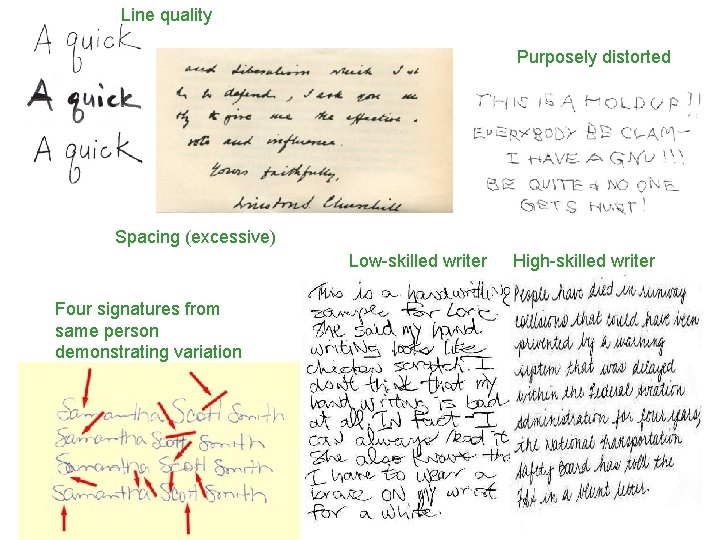 Line quality
A quick
A quick
A quick
and Liberalism which I st
to defend, I ask you me
ly to give me the effective
vote and influence.
Yours faithfully,
Winston S. Churchill
Purposely distorted
THIS IS A HOLDUP!!
EVERYBODY BE CLAM-
I HAVE A GNU!!!
BE QUITE & NO ONE
GETS HURT!
Spacing (excessive)
Low-skilled writer
This is a handwriting
sample for Lore
She said my hand
writing looks like
chicken scratch. I
don't think that my
hand writing is bad
at all. IN fact - I
can always read it
She also knows th
I have to wear a
brace ON my wrist
for a while.
High-skilled writer
People have died in runway
collisions that could have been
prevented by a warning
system that was delayed
within the federal aviation
administration for four years,
the national transportation
safety board has told the
FAA in a blunt letter.
Four signatures from
same person
demonstrating variation
Samantha Scott Smith
Samantha Scott Smith
Samantha Scott Smith
Samantha Scott Smith